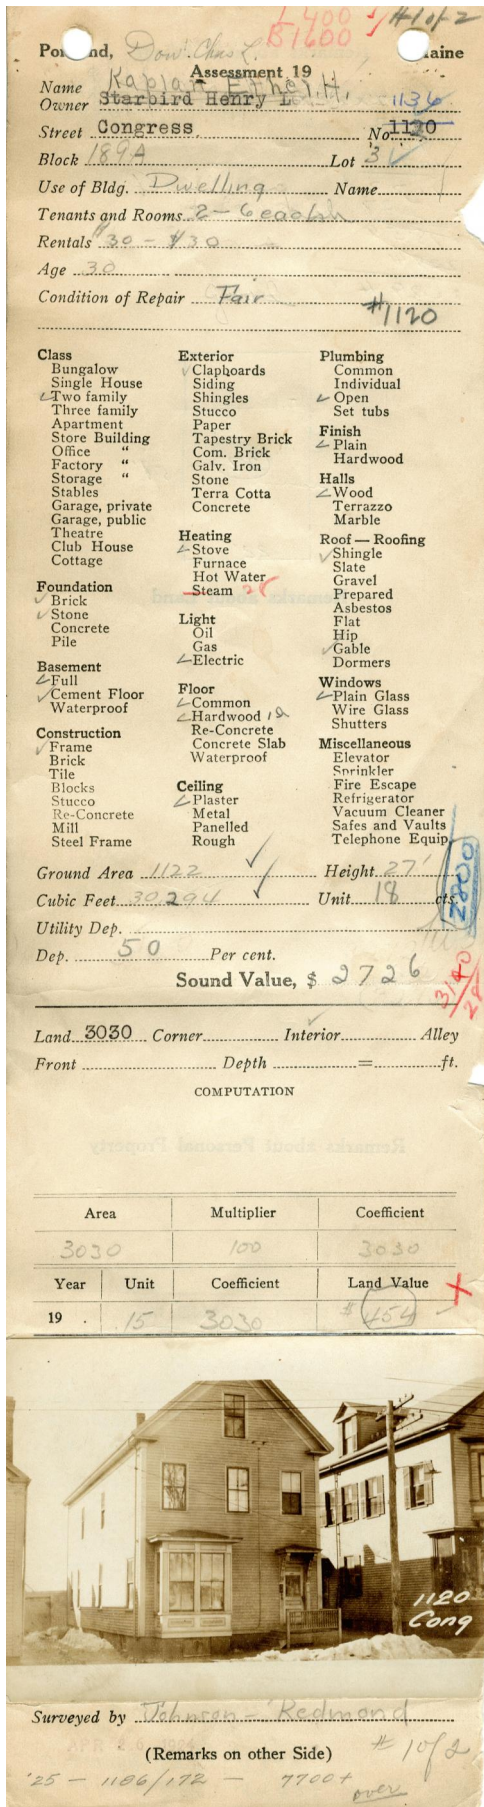 L 400 #1 of 2
B 1600
Portland, Dow. Chas L. Maine
Assessment 19
Kaplan Ethel H.
Name
Owner Starbird Henry L 1136
Street Congress No. 1120
Block 189A Lot 3
Use of Bldg. Dwelling Name
Tenants and Rooms 2 - 6 each
Rentals $30 - $30
Age 30
Condition of Repair Fair
#1120
Class
Bungalow
Single House
Two family
Three family
Apartment
Store Building
Office "
Factory "
Storage "
Stables
Garage, private
Garage, public
Theatre
Club House
Cottage
Foundation
Brick
Stone
Concrete
Pile
Basement
Full
Cement Floor
Waterproof
Construction
Frame
Brick
Tile
Blocks
Stucco
Re-Concrete
Mill
Steel Frame
Exterior
Clapboards
Siding
Shingles
Stucco
Paper
Tapestry Brick
Com. Brick
Galv. Iron
Stone
Terra Cotta
Concrete
Heating
Stove
Furnace
Hot Water
Steam
Light
Oil
Gas
Electric
Floor
Common
Hardwood
Re-Concrete
Concrete Slab
Waterproof
Ceiling
Plaster
Metal
Panelled
Rough
Plumbing
Common
Individual
Open
Set tubs
Finish
Plain
Hardwood
Halls
Wood
Terrazzo
Marble
Roof — Roofing
Shingle
Slate
Gravel
Prepared
Asbestos
Flat
Hip
Gable
Dormers
Windows
Plain Glass
Wire Glass
Shutters
Miscellaneous
Elevator
Sprinkler
Fire Escape
Refrigerator
Vacuum Cleaner
Safes and Vaults
Telephone Equip.
Ground Area 1122 Height 27'
Cubic Feet 30,294 Unit 18 cts.
2800
Utility Dep.
Dep. 50 Per cent.
Sound Value, $ 2726
3140
28
Land 3030 Corner Interior Alley
Front Depth = ft.
COMPUTATION
Area Multiplier Coefficient
3030 100 3030
Year Unit Coefficient Land Value
19 . 15 3030 $ 454
1120
Cong
Surveyed by Johnson - Redmond
(Remarks on other Side) # 1 of 2
'25 - 1186/172 - 7700+
over